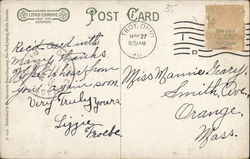 POST CARD
LITHO-CHROME
GERMANY
TROY, OHIO
MAY 27
10 30 AM
Rec'd Card with
Many thanks
Hope to hear from
you again soon.
Very Truly yours,
Lizzie
Miss Mamie Geary
Smith, Ave,
Orange,
Mass.